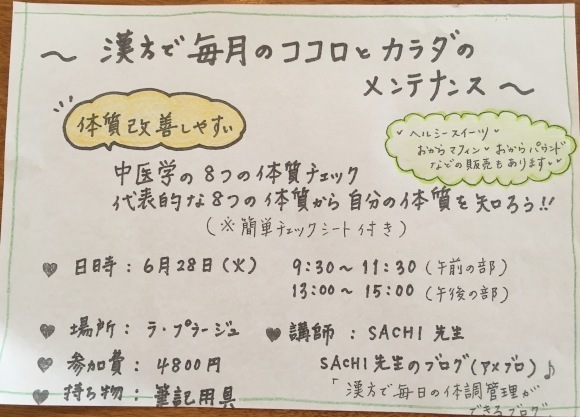 ～ 漢方で毎月のココロとカラダの
メンテナンス ～
体質改善しやすい
ヘルシースイーツ
おからマフィン おからパウンド
などの販売もあります
中医学の8つの体質チェック
代表的な8つの体質から自分の体質を知ろう!!
(※簡単チェックシート付き)
日時：6月28日(火) 9:30～11:30 (午前の部)
13:00～15:00 (午後の部)
場所：ラ・プラージュ 講師：SACHI先生
参加費：4800円 SACHI先生のブログ(アメブロ)♪
持ち物：筆記用具 「漢方で毎日の体調管理が
できるブログ